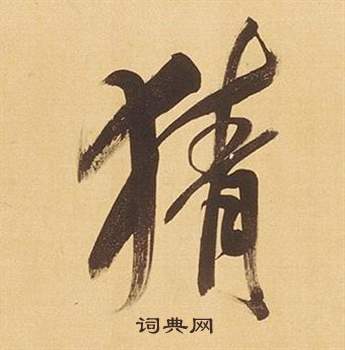 猜
词典网